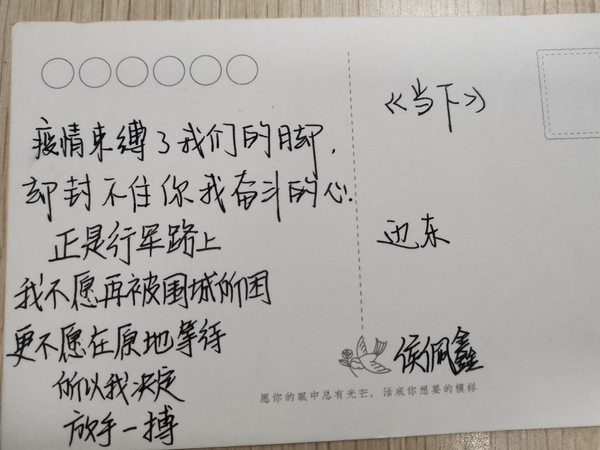 疫情束缚了我们的脚，
却封不住你我奋斗的心.
正是行军路上
我不愿再被围城所困
更不愿在原地等待
所以我决定
放手一搏
《当下》
迈东
侯佩鑫
愿你的眼中总有光芒，活成你想要的模样